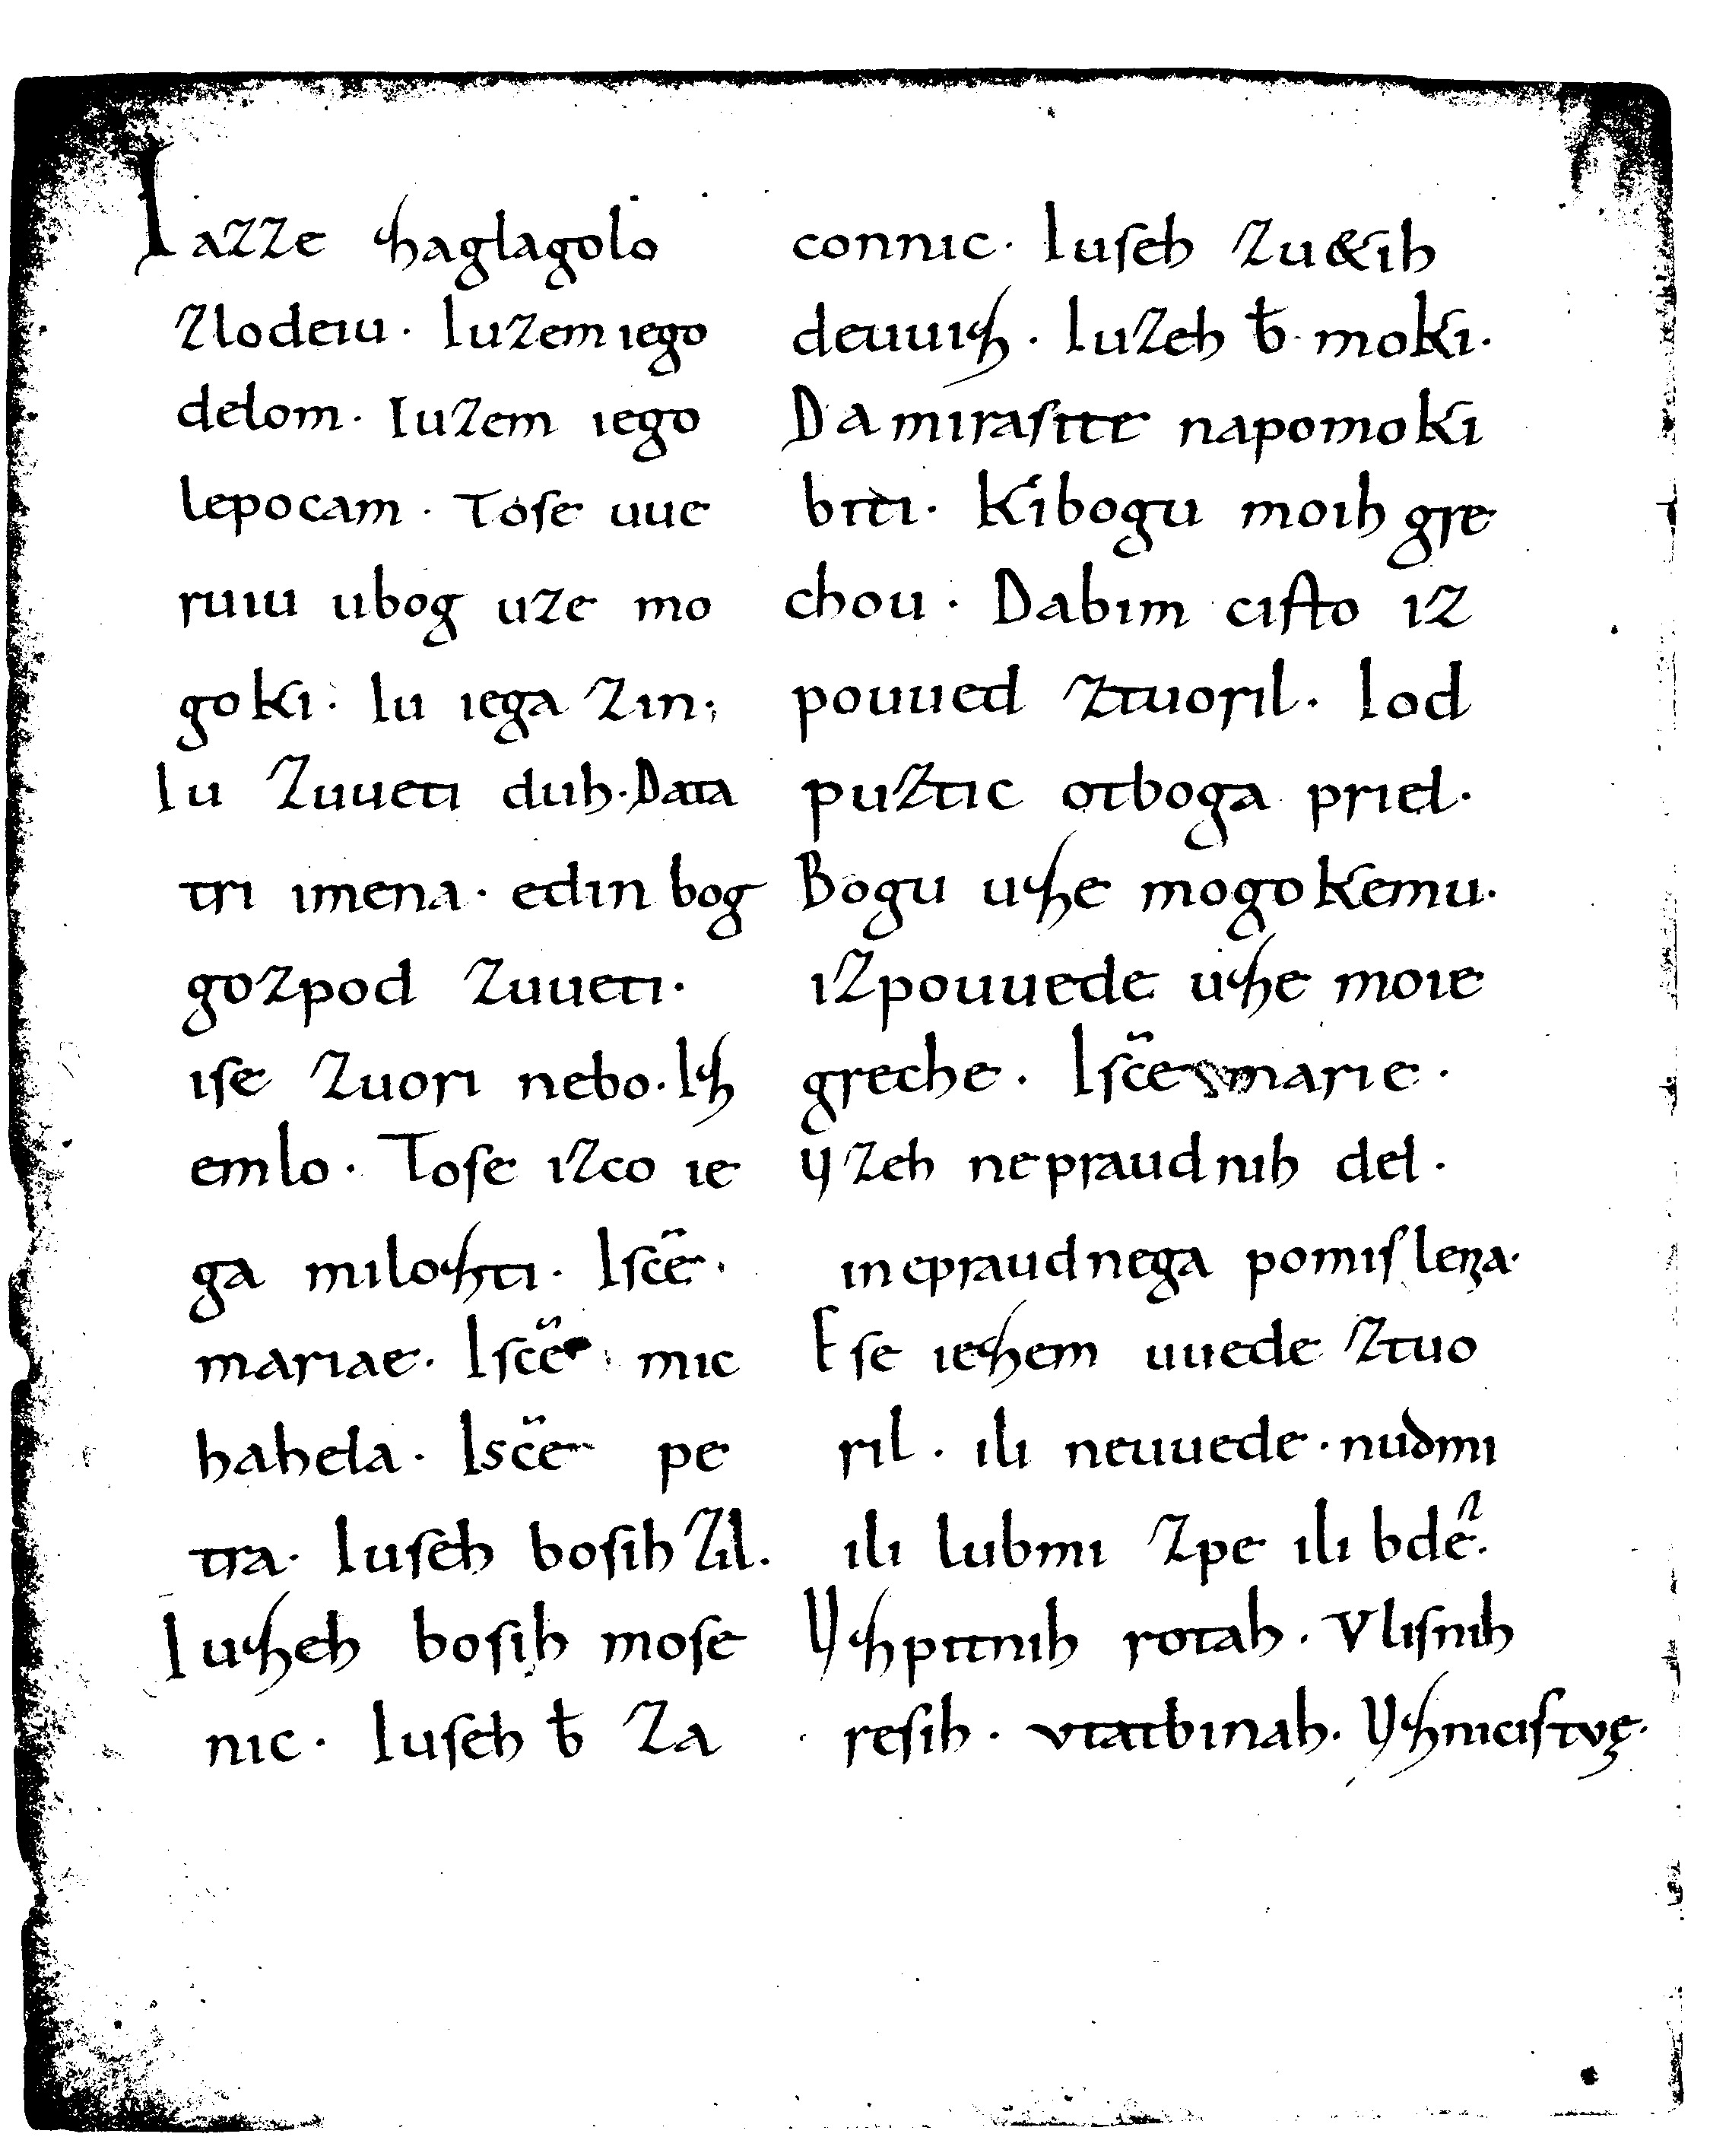 Iazze ꜧaglagolo
zlodeiu · Iuzem iego
delom · Iuzem iego
lepocam · Tose uue
ruiu ubog uze mo
goki · Iu iega zin ;
Iu zuueti duh · Data
tri imena · edin bog
gozpod zuueti ·
ise zuori nebo · Iꜧ
emlo · Tose izco ie
ga miloꜧti · Isc̃e ·
mariae · Isc̃e mic
hahela · Isc̃e pe
tra · Iuseh bosih zil ·
Iuꜧeh bosih mose
nic · Iuseh ƀ za
connic · Iuseh zu&ih
deuuiꜧ · Iuzeh ƀ moki ·
Da mirasite napomoki
biti · Kibogu moih gre
chou · Dabim cisto iz
pouued ztuoril · Iod
puztic otboga priel ·
Bogu uꜧe mogokemu ·
izpouuede uꜧe moie
greche · Isc̃e marie ·
Y zeh nepraudnih del ·
inepraudnega pomisleza ·
Ese ieꜧem uuede ztuo
ril · ili neuuede · nudmi
ili lubmi zpe ili bde ·
Y ꜧpitnih rotah · Vlisnih
resih · vtatbinah · Y ꜧnicistvę ·